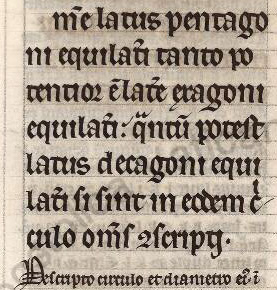 m̄e latus pentago
ni equilat̄i tanto po
tentior ē lat̄e exagoni
equilat̄i: q̄ntū potest
latus decagoni equi
lat̄i si sint in eodem c̄
culo om̄s 2scripti.
Descripto circulo et diametro eiꝰ. i